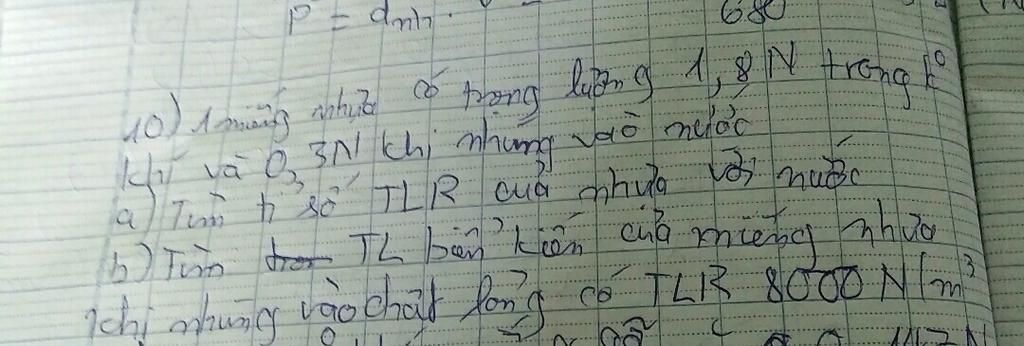 P = dnn.
680
10) 1 miếng nhựa có trọng lượng 1,8 N trong k°
khí và 0,3N khi nhúng vào nước
a) Tìm tỉ số TLR của nhựa với nước
b) Tìm TL biểu kiến của miếng nhựa
khi nhúng vào chất lỏng có TLR 8000 N/m³